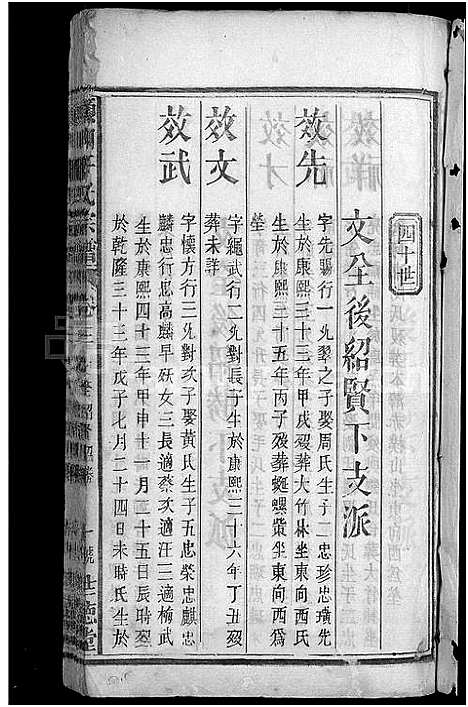 四十世
文全後紹賢下支派
效先
字先賜行一允翠之子娶周氏生子二忠珍忠璜先
生於康熙三十三年甲戌歿葬大竹林坐東向西氏
生於康熙三十五年丙子歿葬蜒螺形坐東向西為
塋
效文
字繩武行二允對長子生於康熙三十六年丁丑歿
葬未詳
效武
字懷方行六允對次子娶黃氏生子五忠榮忠麒忠
麟忠行忠高麟早殀女三長適蔡次適汪三適榆武
生於康熙四十三年甲申十一月二十五日辰時歿
於乾隆三十三年戊子七月二十四日未時氏生於
氏宗譜 卷三